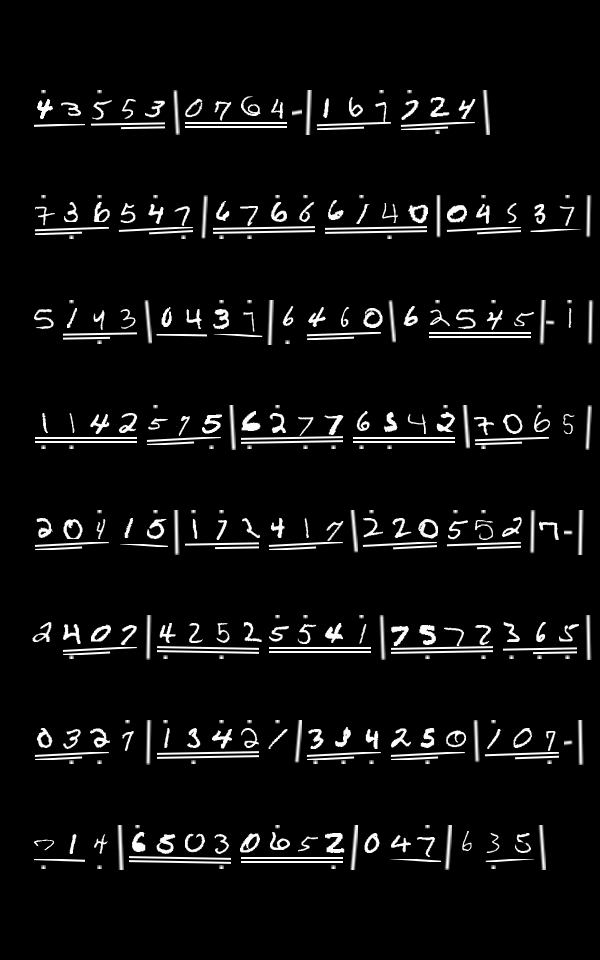 43553|0764-|167724
736547|67666140|04537
5143|0437|6460|62545-1
1142575|62776342|7065
20415|172417|220552|7-
2407|42525541|7572365
0327|13421|334250|107-
714|65030652|047|635